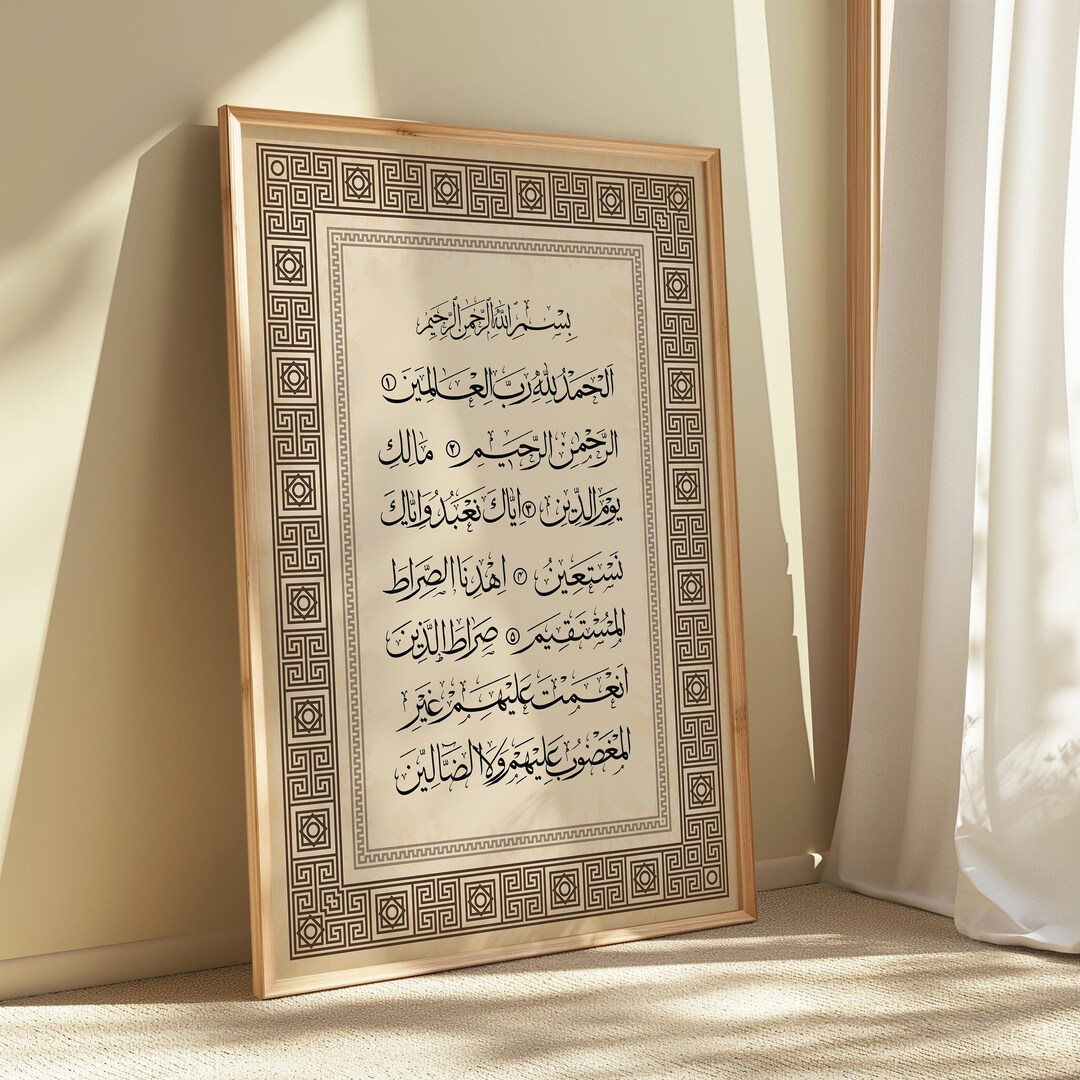 بِسْمِ اللهِ الرَّحْمٰنِ الرَّحِيْمِ
اَلْحَمْدُ لِلّٰهِ رَبِّ الْعَالَمِيْنَ ۝١
الرَّحْمٰنِ الرَّحِيْمِ ۝٢ مَالِكِ
يَوْمِ الدِّيْنِ ۝٣ اِيَّاكَ نَعْبُدُ وَاِيَّاكَ
نَسْتَعِيْنُ ۝۴ اِهْدِنَا الصِّرَاطَ
الْمُسْتَقِيْمَ ۝۵ صِرَاطَ الَّذِيْنَ
اَنْعَمْتَ عَلَيْهِمْ غَيْرِ
الْمَغْضُوْبِ عَلَيْهِمْ وَلَا الضَّالِّيْنَ